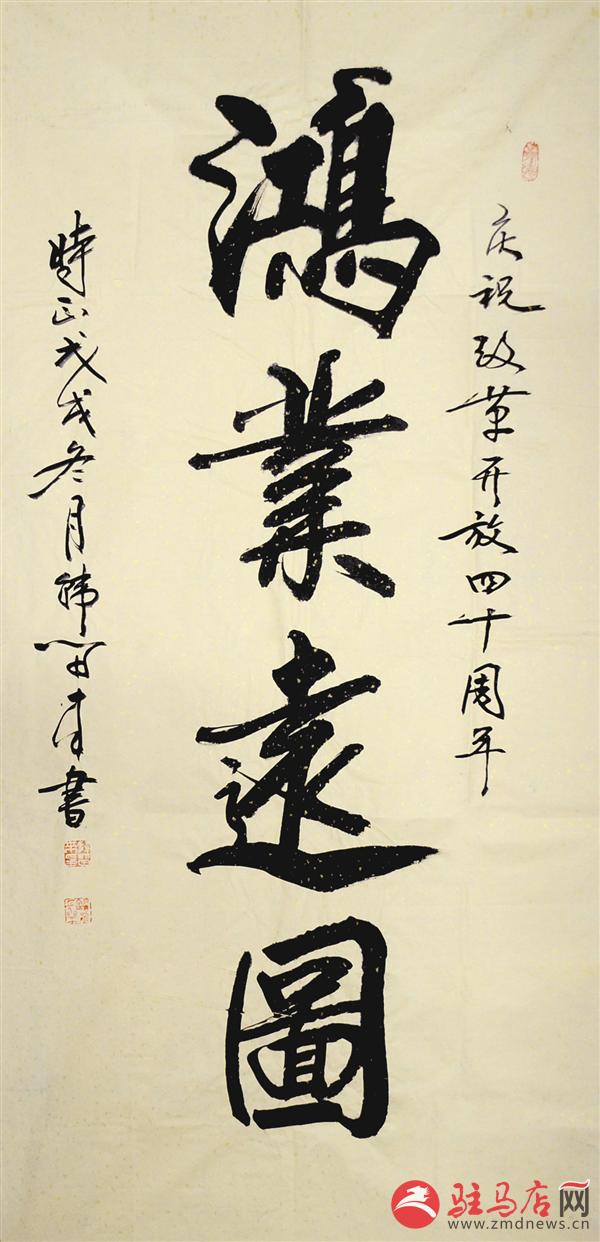 庆祝改革开放四十周年
鴻業遠圖
時正戊戌冬月韩
書
驻马店网
www.zmdnews.cn